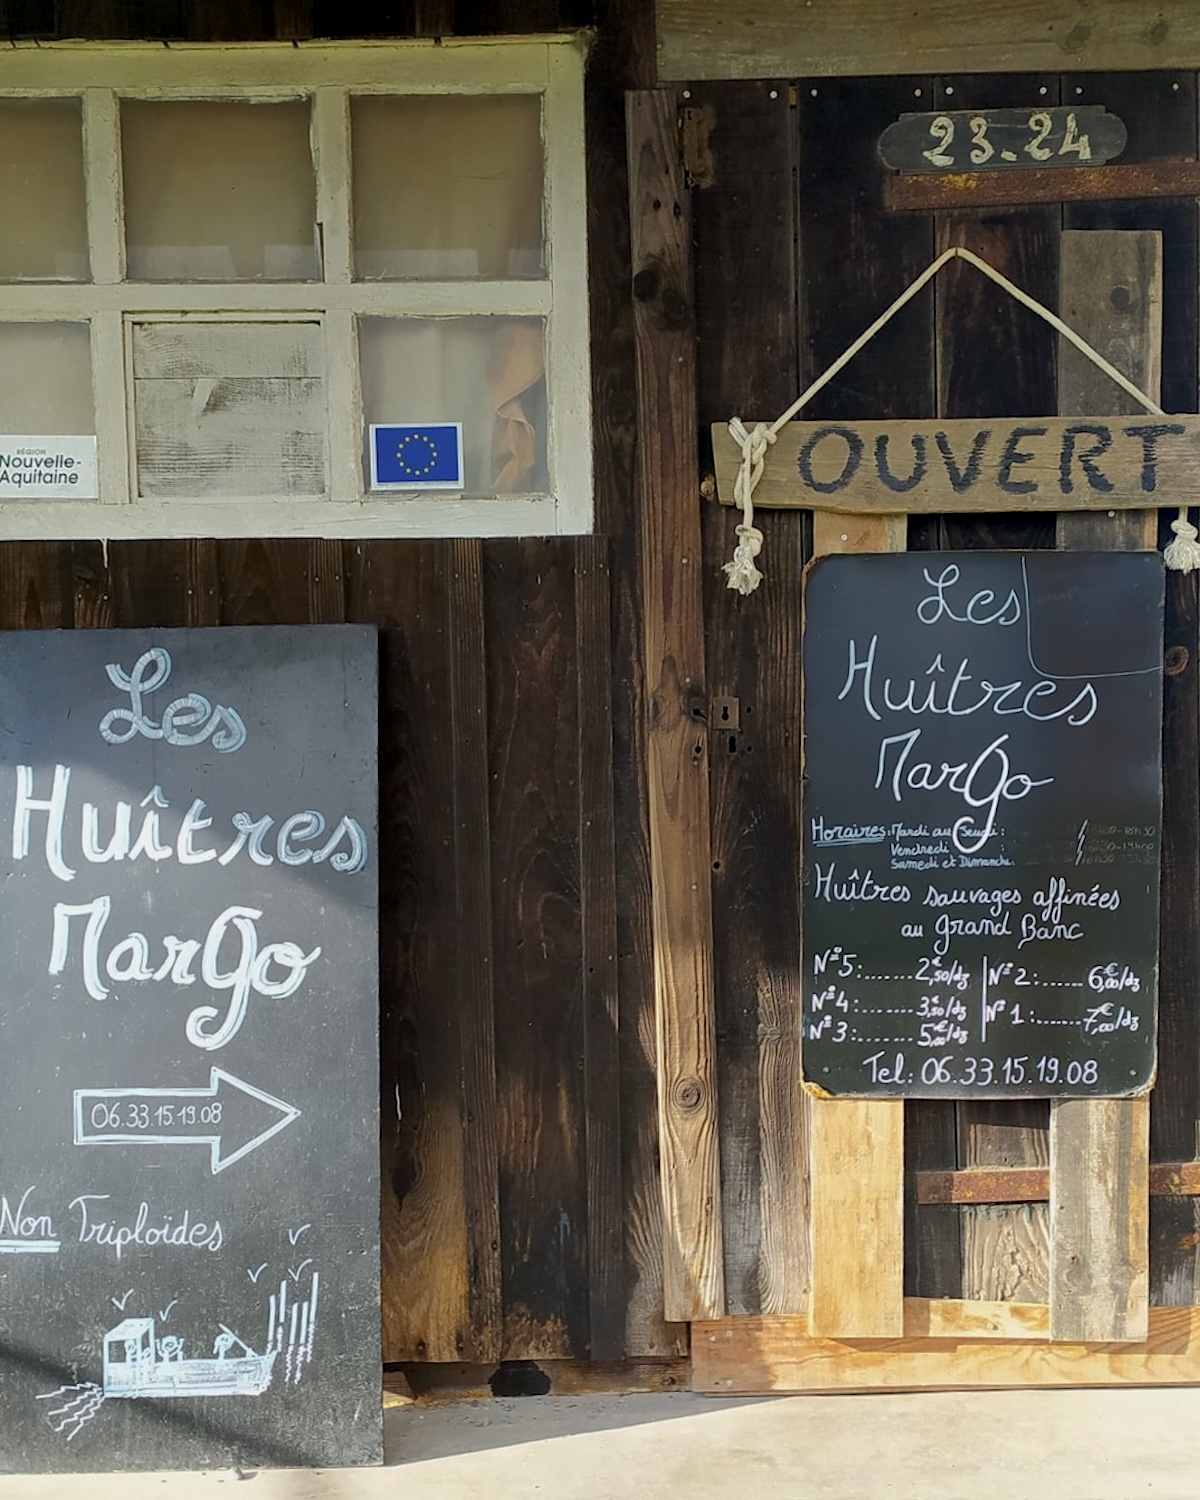 23.24
RÉGION
Nouvelle-
Aquitaine
OUVERT
Les
Huîtres
MarGo
06.33.15.19.08
Non Triploïdes
Les
Huîtres
MarGo
Horaires: Mardi au Jeudi :
Vendredi :
Samedi et Dimanche:
Huîtres sauvages affinées
au Grand Banc
N°5:......2,50€/dz
N°4:.......3,50€/dz
N°3:.......5,00€/dz
N°2:......6,00€/dz
N°1:......7,00€/dz
Tel: 06.33.15.19.08